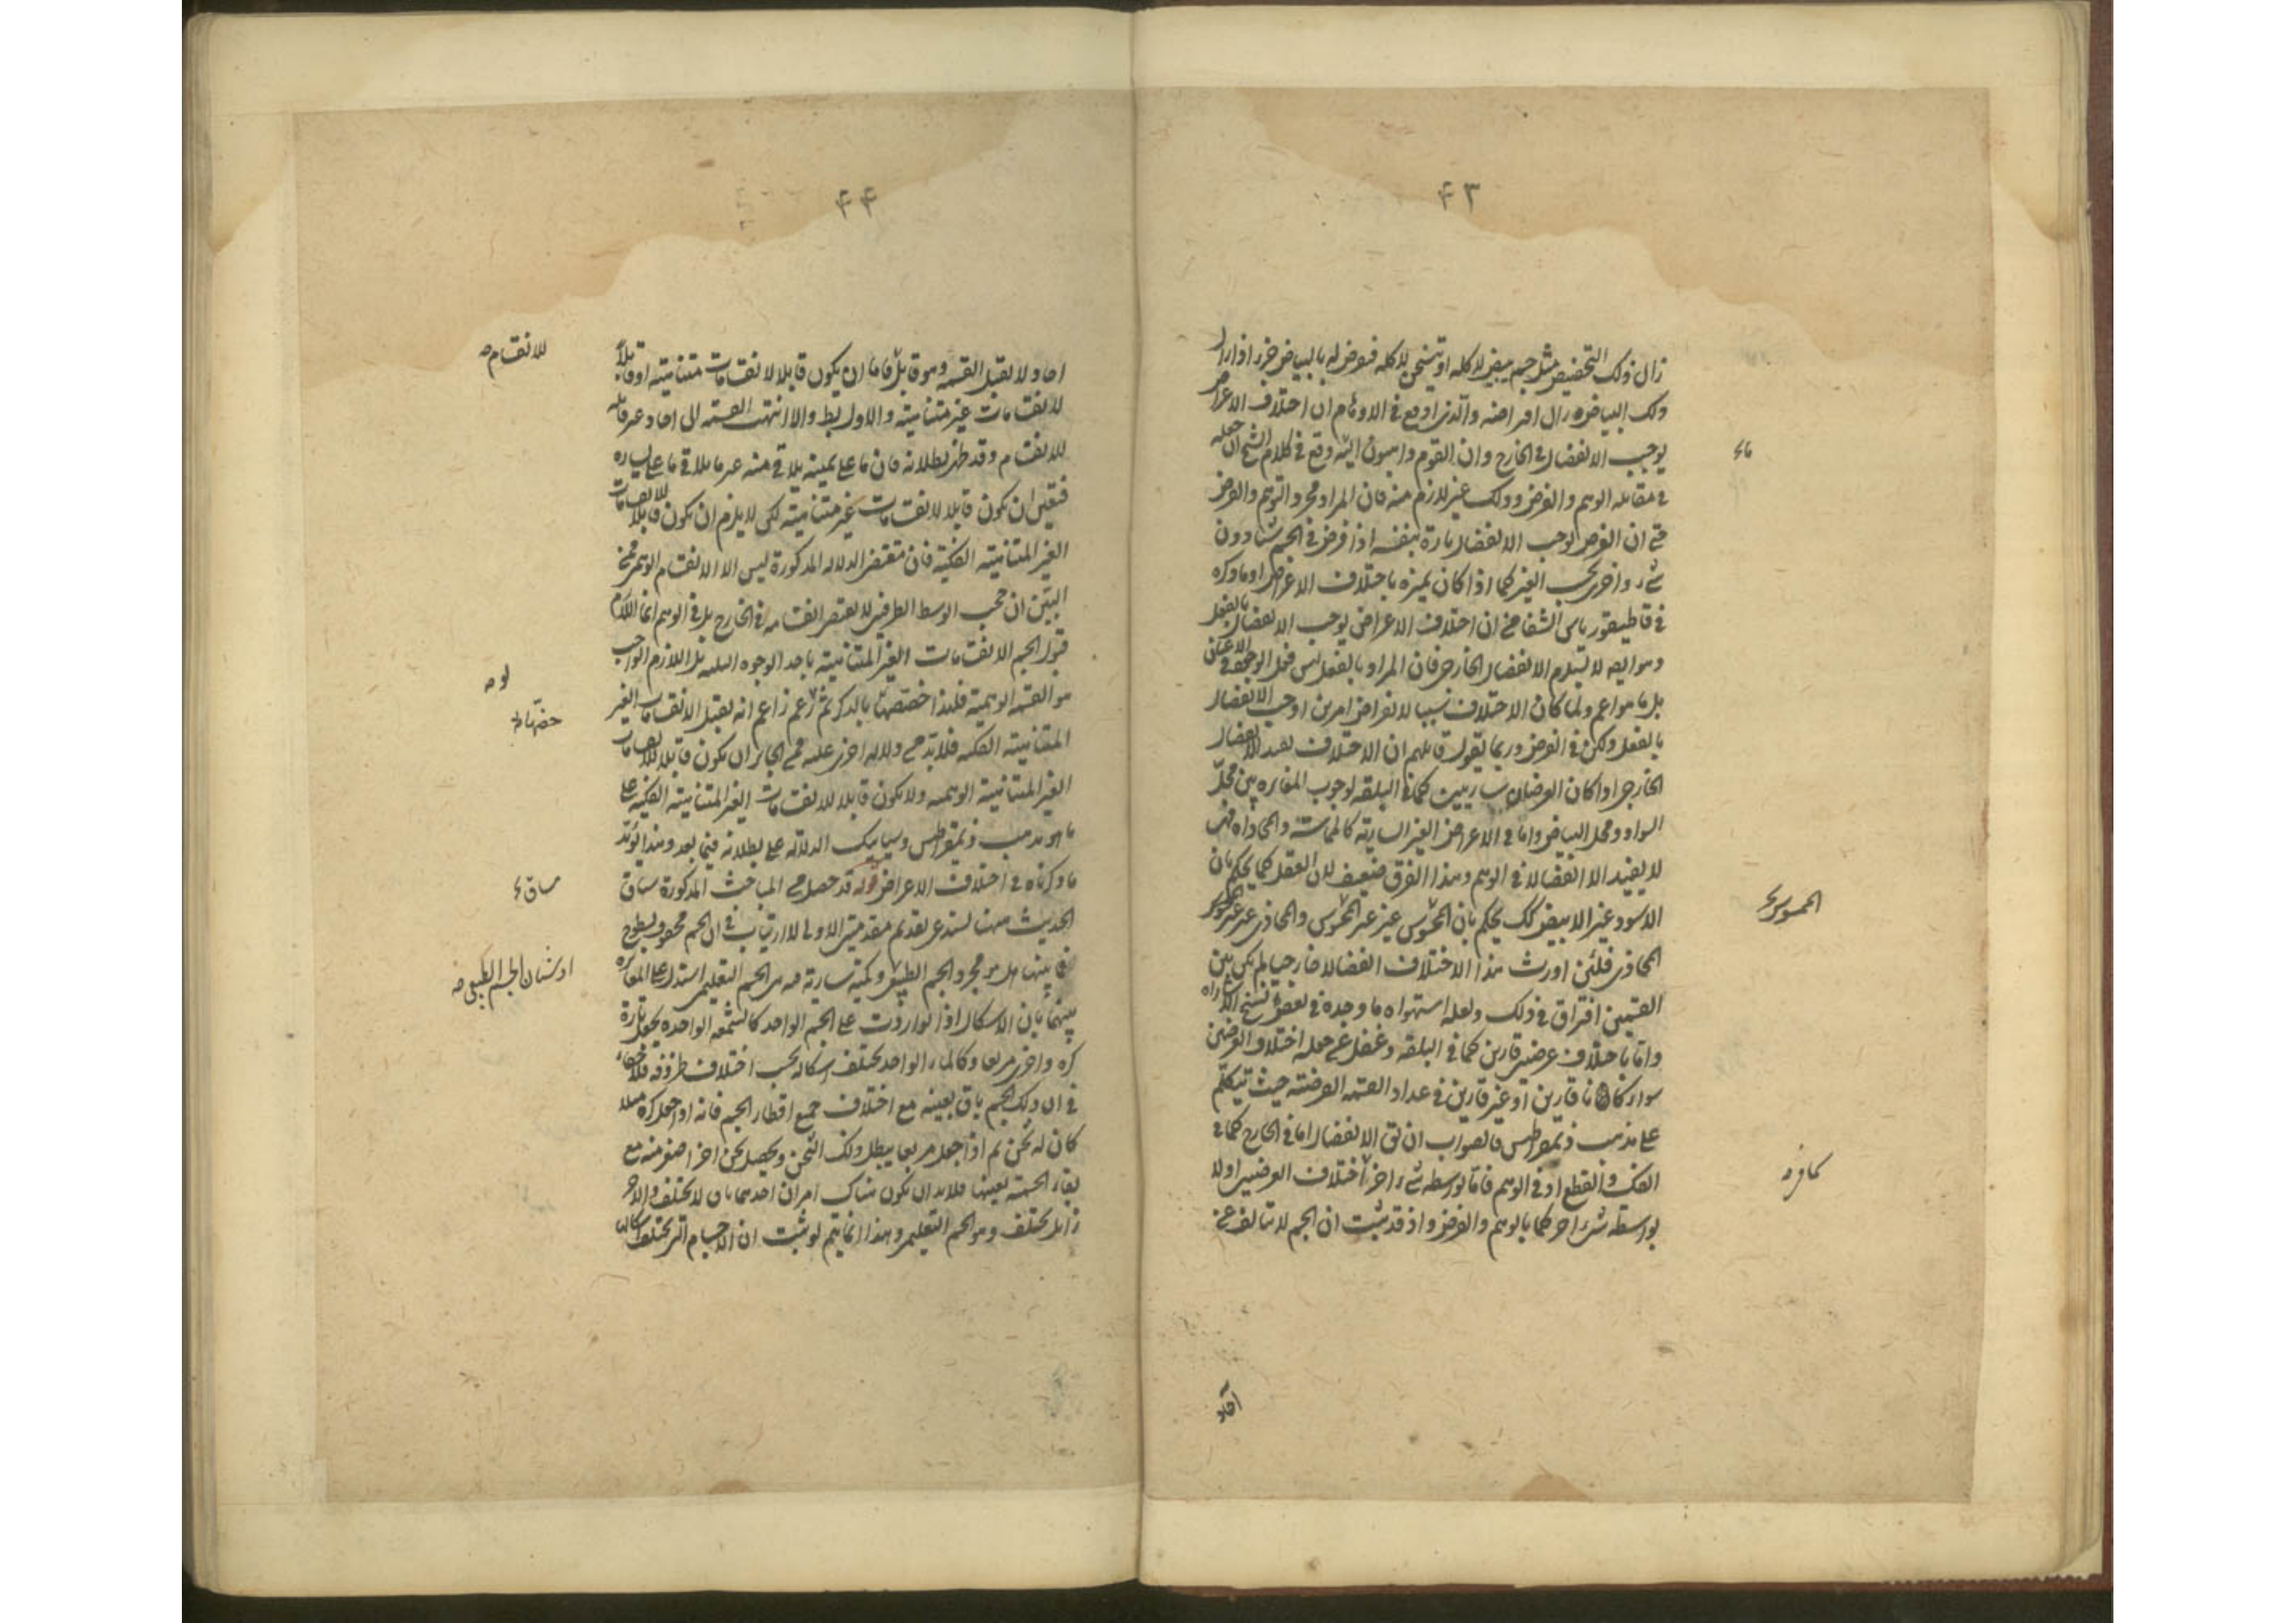 ٤٣
زال ذلك التخصيص مثل جسم يبيض لا كله او يتسخن لا كله فيعرض له بالبياض جزء اذا زال
ذلك البياض زال افتراضه والذى اوقع فى الاوهام ان اختلاف الاعراض
يوجب الانفصال فى الخارج وان القوم ذاهبون اليه وقع فى كلام الشيخ ان جعله
فى مقابلة الوهم والفرض وذلك غير لازم منه فان المراد مجرد التوهم والفرض
حتى ان الفرض يوجب الانفصال تارة بنفسه اذا فرض فى الجسم شيئا دون
شىء واخرى بحسب الغير كما اذا كان يميزه باختلاف الاعراض او ما ذكره
فى قاطيغورياس الشفا من ان اختلاف الاعراض يوجب الانفصال بالفعل
وهو ايضا لا يستلزم الانفصال الخارجى فان المراد بالفعل ليس فعل الوجود فى الاعيان
بل ما هو اعم ولما كان الاختلاف سببا لانفراض امرين اوجب الانفصال
بالفعل ولكن فى الفرض وربما يقول قائلهم ان الاختلاف يفيد الانفصال
الخارجى اذا كان العرضان ساريين كما فى البلقة لوجوب المغايرة بين محل
السواد ومحل البياض واما فى الاعراض الغير السارية كالمماسة والمحاذاة فهى
لا يفيد الا انفصالا فى الوهم وهذا الفرق ضعيف لان العقل كما يحكم بان
الاسود غير الابيض كذلك يحكم بان المحسوس غير غير المحسوس والمحاذى غير غير
المحاذى فلئن اورث هذا الاختلاف انفصالا خارجيا لم يكن بين
القسمين افتراق فى ذلك ولعله استهواه ما وجده فى بعض نسخ
واما باختلاف عرضين قارين كما فى البلقة وغفل عن جعله اختلاف العرضين
سواء كانا قارين او غير قارين فى عداد القسمة الفرضية حيث تكلم
على مذهب ذيمقراطيس فالصواب ان يق الانفصال اما فى الخارج كما فى
الفك والقطع او فى الوهم فاما بواسطة شىء اخر كاختلاف العرضين او لا
بواسطة شىء اخر كما بالوهم والفرض واذ قد ثبت ان الجسم لا يتألف عن
المحسوس
كما فى
آحاد
٤٤
احاد لا تقبل القسمة وهو قابل فاما ان يكون قابلا لانقسامات متناهية او قابلا
لانقسامات غير متناهية والاول بط والا انتهت القسمة الى احاد غير قابلة
للانقسام وقد ظهر بطلانه فان ما على يمينه يلاقى منه غير ما يلاقى ما على يساره
فتعين ان يكون قابلا لانقسامات غير متناهية لكن لا يلزم ان يكون قابلا للانقسامات
الغير المتناهية الفكية فان مقتضى الدلالة المذكورة ليس الا الانقسام الوهمى فمن
البين ان حجب الوسط الطرفين لا يقتضى انقسامه فى الخارج بل فى الوهم انما اللازم
قبول الجسم الانقسامات الغير المتناهية باحد الوجوه الثلثة بل اللازم الواجب
هو القسمة الوهمية فلهذا خصصها بالذكر ثم زعم زاعم انه يقبل الانقسامات الغير
المتناهية الفكية فلا بد من دلالة اخرى عليه فمن الجائز ان يكون قابلا للانقسامات
الغير المتناهية الوهمية ولا يكون قابلا للانقسامات الغير المتناهية الفكية على
ما هو مذهب ذيمقراطيس وسيأتيك الدلالة على بطلانه فيما بعد وهذا يؤيد
ما ذكرناه فى اختلاف الاعراض قوله قد حصل من المباحث المذكورة سياق
الحديث ههنا يستدعى تقديم مقدمتين الاولى لا ارتياب فى ان الجسم محفوف بسطوح
فما بينها هل هو مجرد الجسم الطبيعى وكمية سارية فيه هى الجسم التعليمى استدل على المغايرة
بينهما بان الاشكال اذا تواردت على الجسم الواحد كالشمعة الواحدة يجعل تارة
كرة واخرى مربعا وكالماء الواحد يختلف اشكاله بحسب اختلاف ظروفه فلا خفاء
فى ان ذلك الجسم باق بعينه مع اختلاف جميع اقطار الجسم فانه اذا جعل كرة مثلا
كان له ثخن ثم اذا جعل مربعا يبطل ذلك الثخن ويحصل ثخن اخر اصغر منه مع
بقاء الجسمية بعينها فلا بد ان يكون هناك امران احدهما باق لا يختلف والاخر
زايل يختلف وهو الجسم التعليمى وهذا انما يتم لو ثبت ان الاجسام التى يختلف اشكالها
للانقسام
خصّها
ساق
او شيئان الجسم الطبيعى